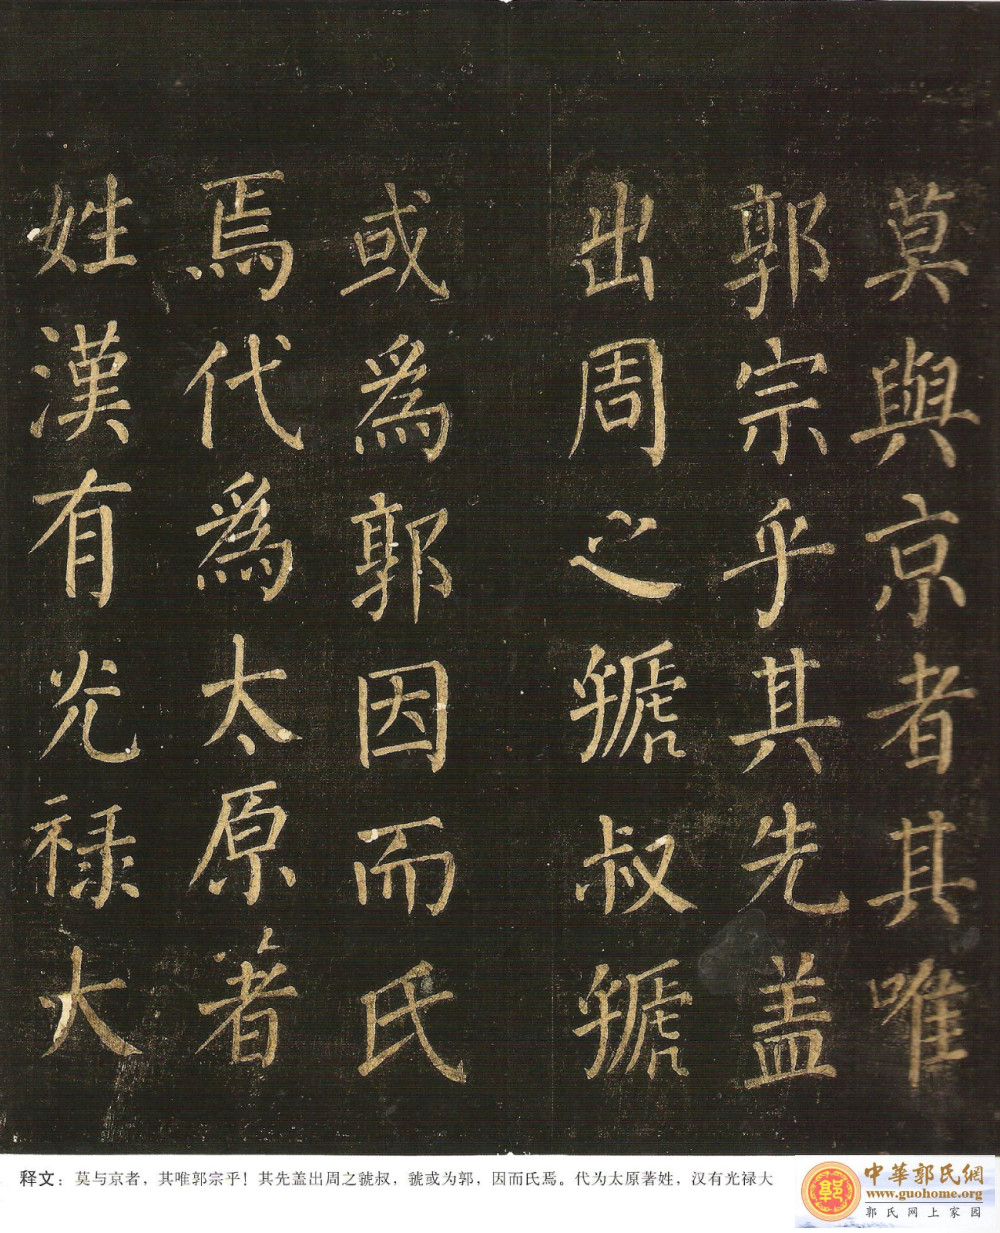 莫與京者其唯
郭宗乎其先盖
出周之虢叔虢
或為郭因而氏
焉代為太原著
姓漢有光禄大
释文：莫与京者，其唯郭宗乎！其先盖出周之虢叔，虢或为郭，因而氏焉。代为太原著姓，汉有光禄大
郭
中華郭氏網
www.guohome.org
郭氏网上家园